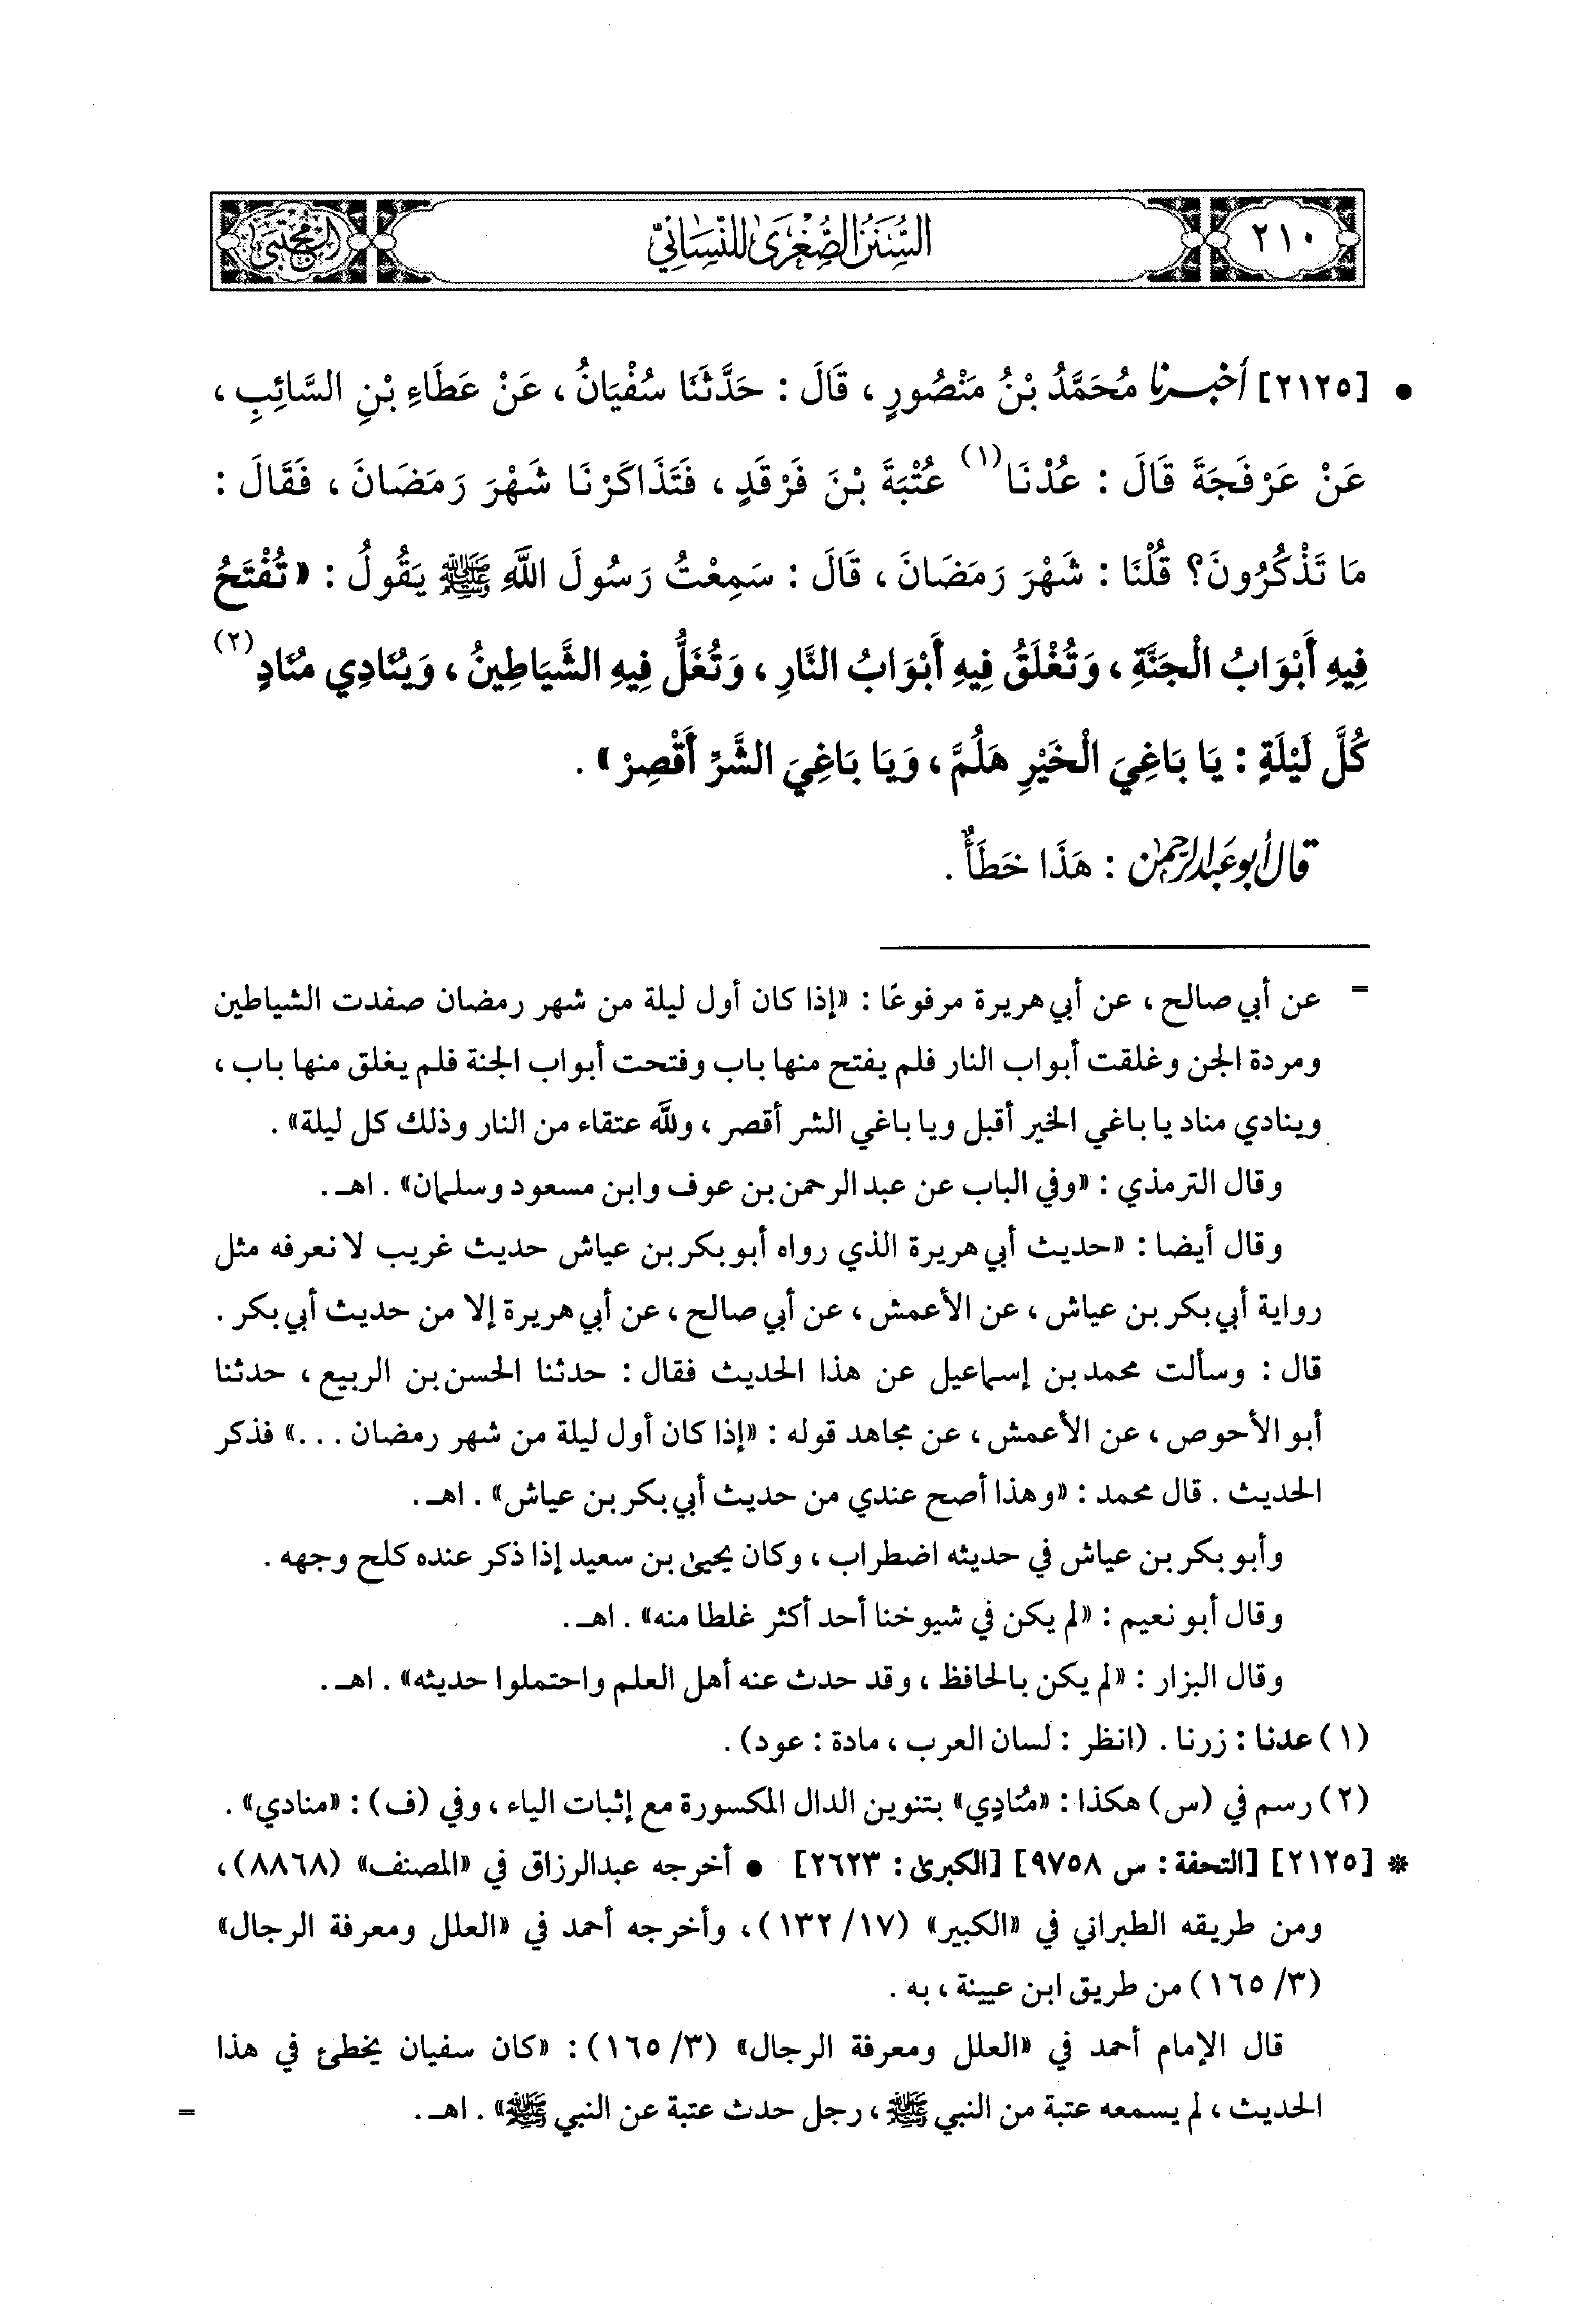 ٢١٠
السُّنَنُ الصُّغْرَى لِلنَّسَائِيِّ
المجتبى
• [٢١٢٥] أخبرنا مُحَمَّدُ بْنُ مَنْصُورٍ ، قَالَ : حَدَّثَنَا سُفْيَانُ ، عَنْ عَطَاءِ بْنِ السَّائِبِ ،
عَنْ عَرْفَجَةَ قَالَ : عُدْنَا(١) عُتْبَةَ بْنَ فَرْقَدٍ ، فَتَذَاكَرْنَا شَهْرَ رَمَضَانَ ، فَقَالَ :
مَا تَذْكُرُونَ؟ قُلْنَا : شَهْرَ رَمَضَانَ ، قَالَ : سَمِعْتُ رَسُولَ اللَّهِ ﷺ يَقُولُ : «تُفْتَحُ
فِيهِ أَبْوَابُ الْجَنَّةِ ، وَتُغْلَقُ فِيهِ أَبْوَابُ النَّارِ ، وَتُغَلُّ فِيهِ الشَّيَاطِينُ ، وَيُنَادِي مُنَادٍ(٢)
كُلَّ لَيْلَةٍ : يَا بَاغِيَ الْخَيْرِ هَلُمَّ ، وَيَا بَاغِيَ الشَّرِّ أَقْصِرْ» .
قال أبو عبد الرحمن : هَذَا خَطَأٌ .
= عن أبي صالح ، عن أبي هريرة مرفوعًا : «إذا كان أول ليلة من شهر رمضان صفدت الشياطين
ومردة الجن وغلقت أبواب النار فلم يفتح منها باب وفتحت أبواب الجنة فلم يغلق منها باب ،
وينادي مناد يا باغي الخير أقبل ويا باغي الشر أقصر ، ولله عتقاء من النار وذلك كل ليلة» .
وقال الترمذي : «وفي الباب عن عبد الرحمن بن عوف وابن مسعود وسلمان» . اهـ.
وقال أيضا : «حديث أبي هريرة الذي رواه أبو بكر بن عياش حديث غريب لا نعرفه مثل
رواية أبي بكر بن عياش ، عن الأعمش ، عن أبي صالح ، عن أبي هريرة إلا من حديث أبي بكر .
قال : وسألت محمد بن إسماعيل عن هذا الحديث فقال : حدثنا الحسن بن الربيع ، حدثنا
أبو الأحوص ، عن الأعمش ، عن مجاهد قوله : «إذا كان أول ليلة من شهر رمضان . . .» فذكر
الحديث . قال محمد : «وهذا أصح عندي من حديث أبي بكر بن عياش» . اهـ.
وأبو بكر بن عياش في حديثه اضطراب ، وكان يحيى بن سعيد إذا ذكر عنده كلح وجهه .
وقال أبو نعيم : «لم يكن في شيوخنا أحد أكثر غلطا منه» . اهـ.
وقال البزار : «لم يكن بالحافظ ، وقد حدث عنه أهل العلم واحتملوا حديثه» . اهـ.
(١) عدنا : زرنا . (انظر : لسان العرب ، مادة : عود) .
(٢) رسم في (س) هكذا : «مُنَادٍي» بتنوين الدال المكسورة مع إثبات الياء ، وفي (ف) : «منادي» .
* [٢١٢٥] [التحفة : س ٩٧٥٨] [الكبرى : ٢٦٢٣] • أخرجه عبدالرزاق في «المصنف» (٨٨٦٨) ،
ومن طريقه الطبراني في «الكبير» (١٧/ ١٣٢) ، وأخرجه أحمد في «العلل ومعرفة الرجال»
(٣/ ١٦٥) من طريق ابن عيينة ، به .
قال الإمام أحمد في «العلل ومعرفة الرجال» (٣/ ١٦٥) : «كان سفيان يخطئ في هذا
الحديث ، لم يسمعه عتبة من النبي ﷺ ، رجل حدث عتبة عن النبي ﷺ» . اهـ. =